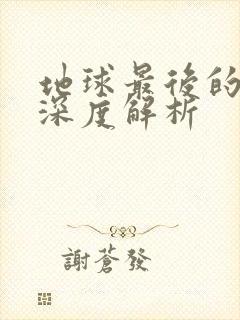 地球最後的
深度解析
謝蒼發